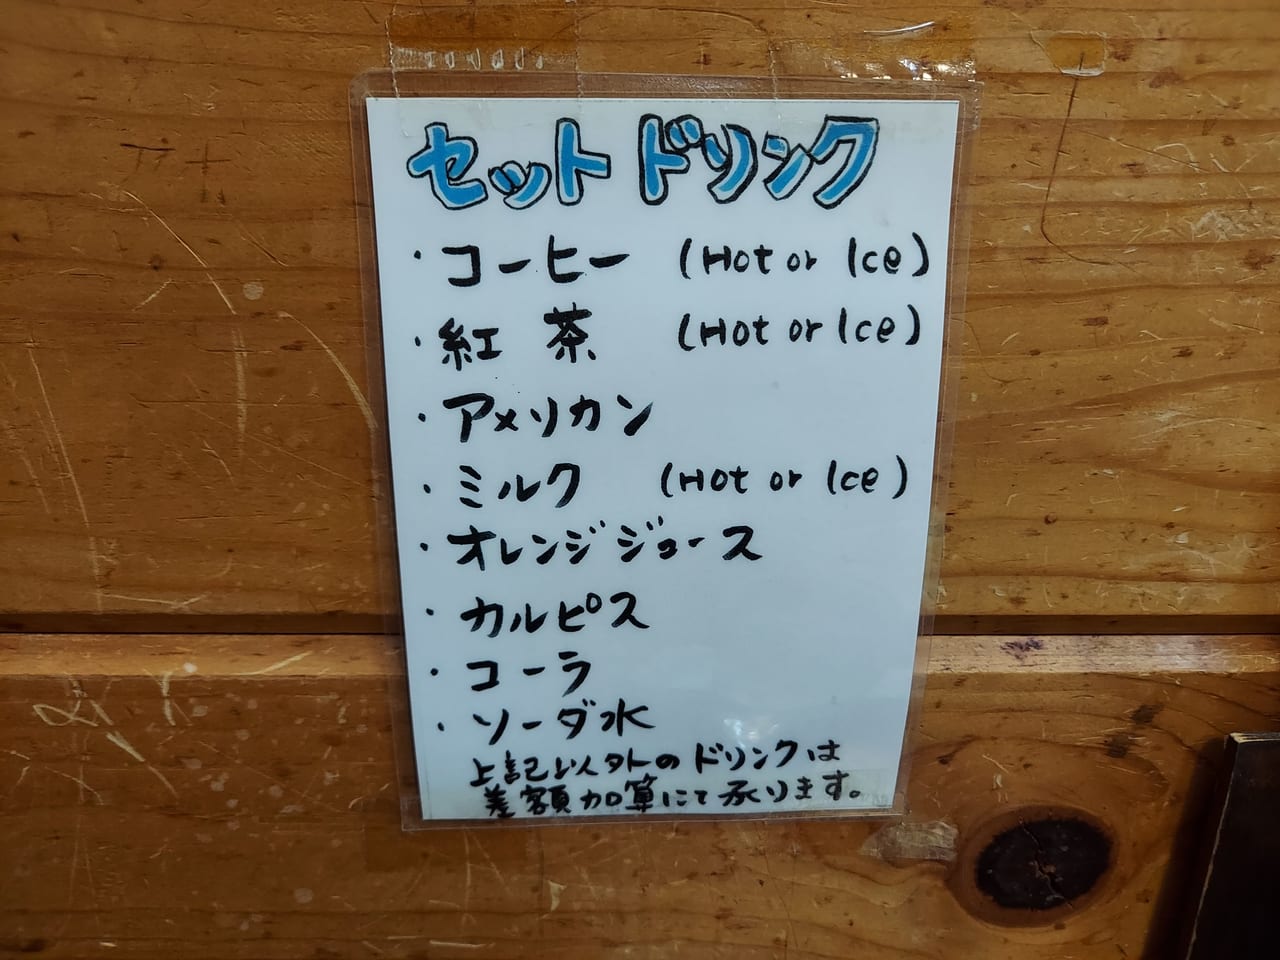 セットドリンク
・コーヒー (Hot or Ice)
・紅茶 (Hot or Ice)
・アメリカン
・ミルク (Hot or Ice)
・オレンジジュース
・カルピス
・コーラ
・ソーダ水
上記以外のドリンクは
差額加算にて承ります。